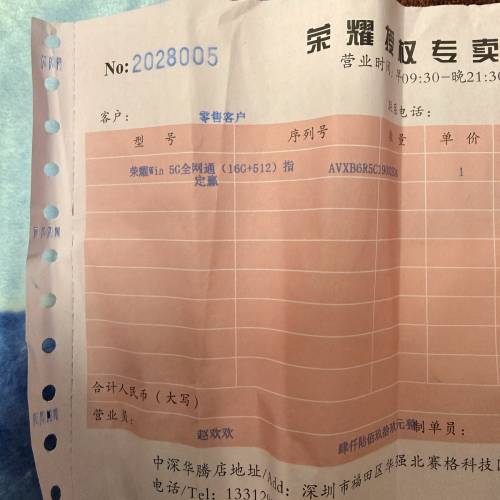 No: 2028005
荣耀授权专卖
营业时间:早09:30-晚21:30
客户: 零售客户 联系电话:
型号 序列号 数量 单价
荣耀Win 5G全网通（16G+512）指 AVXB6R5C19002 1
定赢
合计人民币（大写） 肆仟陆佰玖拾玖元整
营业员: 赵欢欢 制单员:
中深华腾店地址/Add: 深圳市福田区华强北赛格科技
电话/Tel: 13312